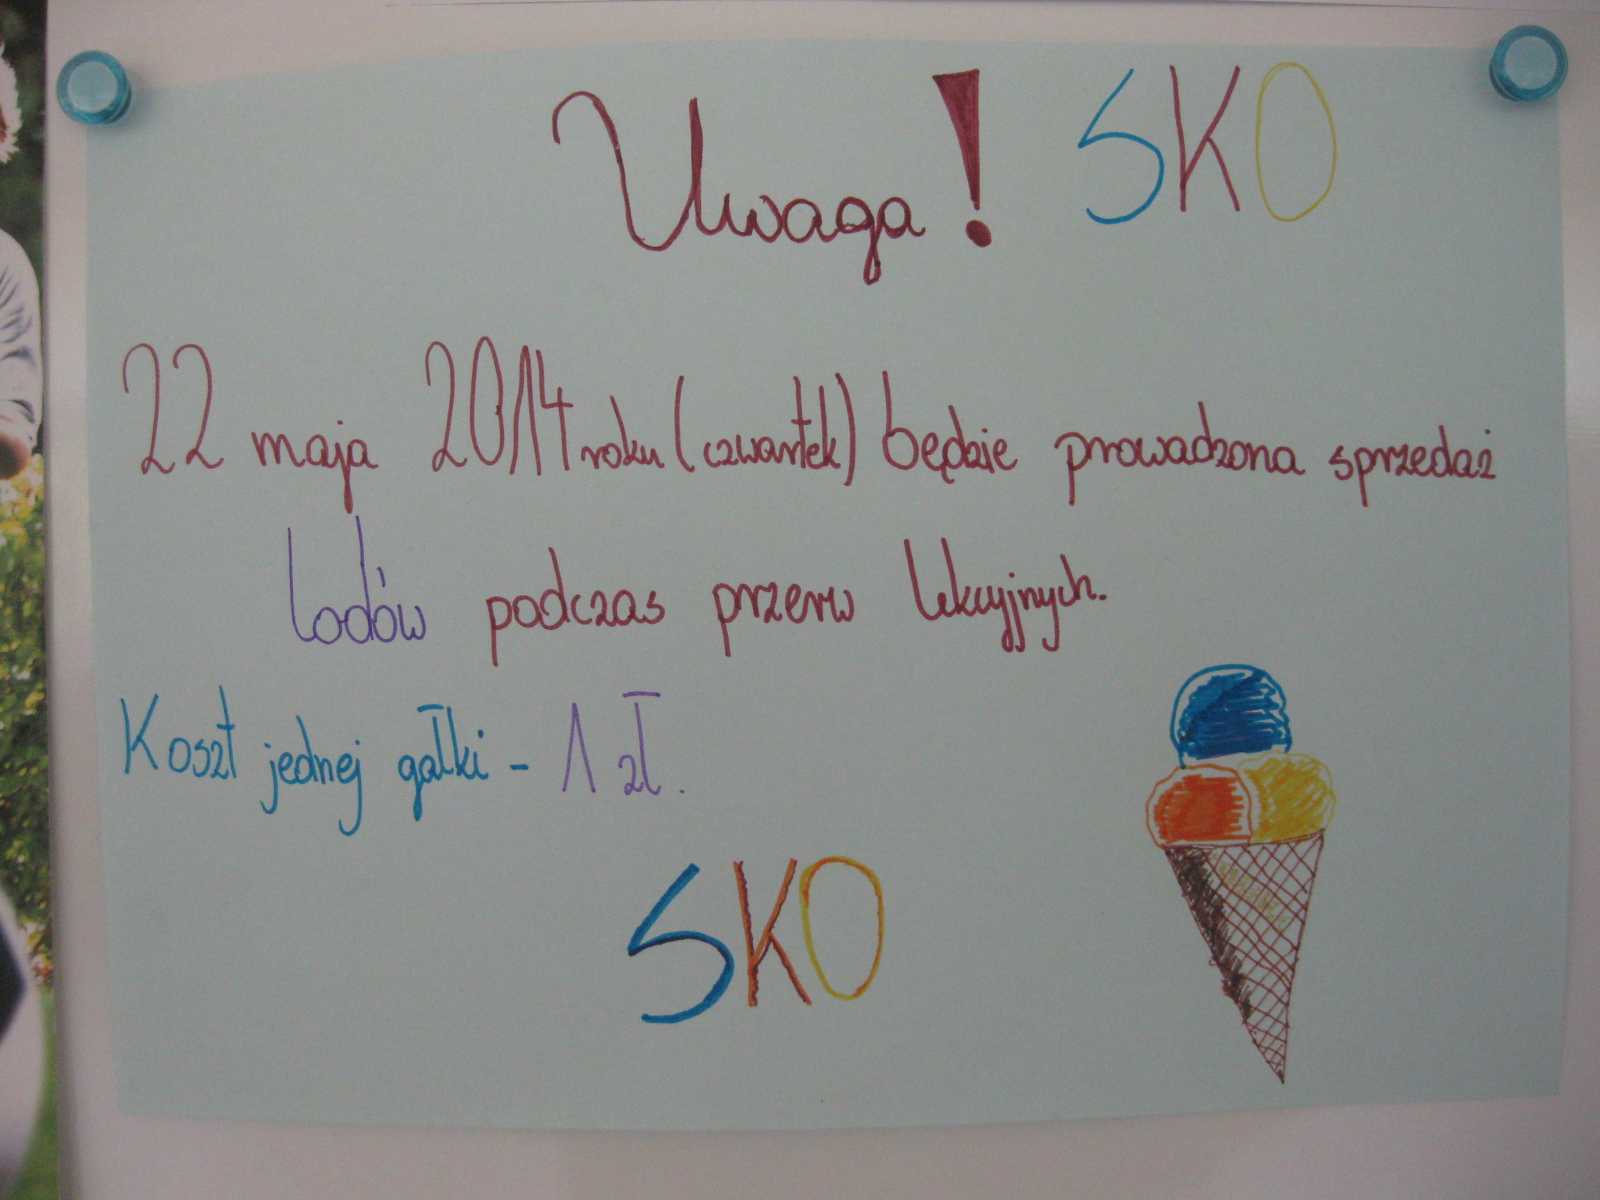 Uwaga! SKO
22 maja 2014 roku (czwartek) będzie prowadzona sprzedaż
lodów podczas przerw lekcyjnych.
Koszt jednej gałki - 1 zł.
SKO